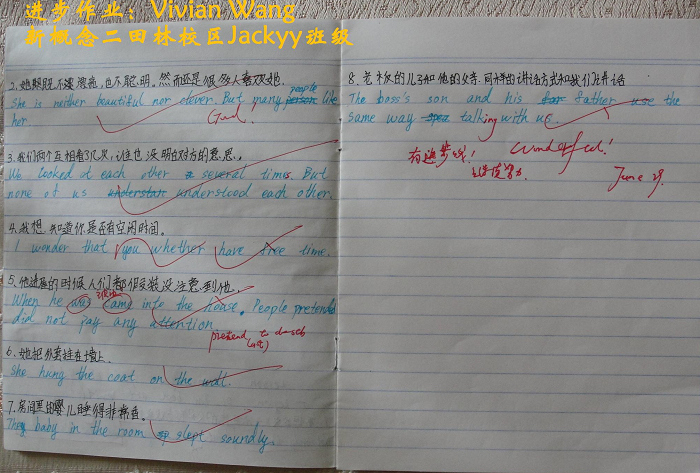 进步作业：Vivian Wang
新概念二田林校区Jackyy班级
2.她既不漂亮,也不聪明。然而还是很多人喜欢她.
people
She is neither beautiful nor clever. But many person like
her.
Good
3.我们两个互相看了几次,谁也没明白对方的意思。
We looked at each other a several times. But
none of us understan understood each other.
4.我想知道你是否有空闲时间。
I wonder that you whether have free time.
5.他进屋的时候人们都假装没注意到他.
When he was came into the house. People pretended
did not pay any attention.
pretend to do sth
6.她把外套挂在墙上.
She hung the coat on the wall.
7.房间里的婴儿睡得非常香。
They baby in the room slept soundly.
8.老板的儿子和他的父亲同样的讲话方式和我们讲话
The boss's son and his father use the
same way talking with us.
有进步哦! Wonderful!
继续努力
June 29.